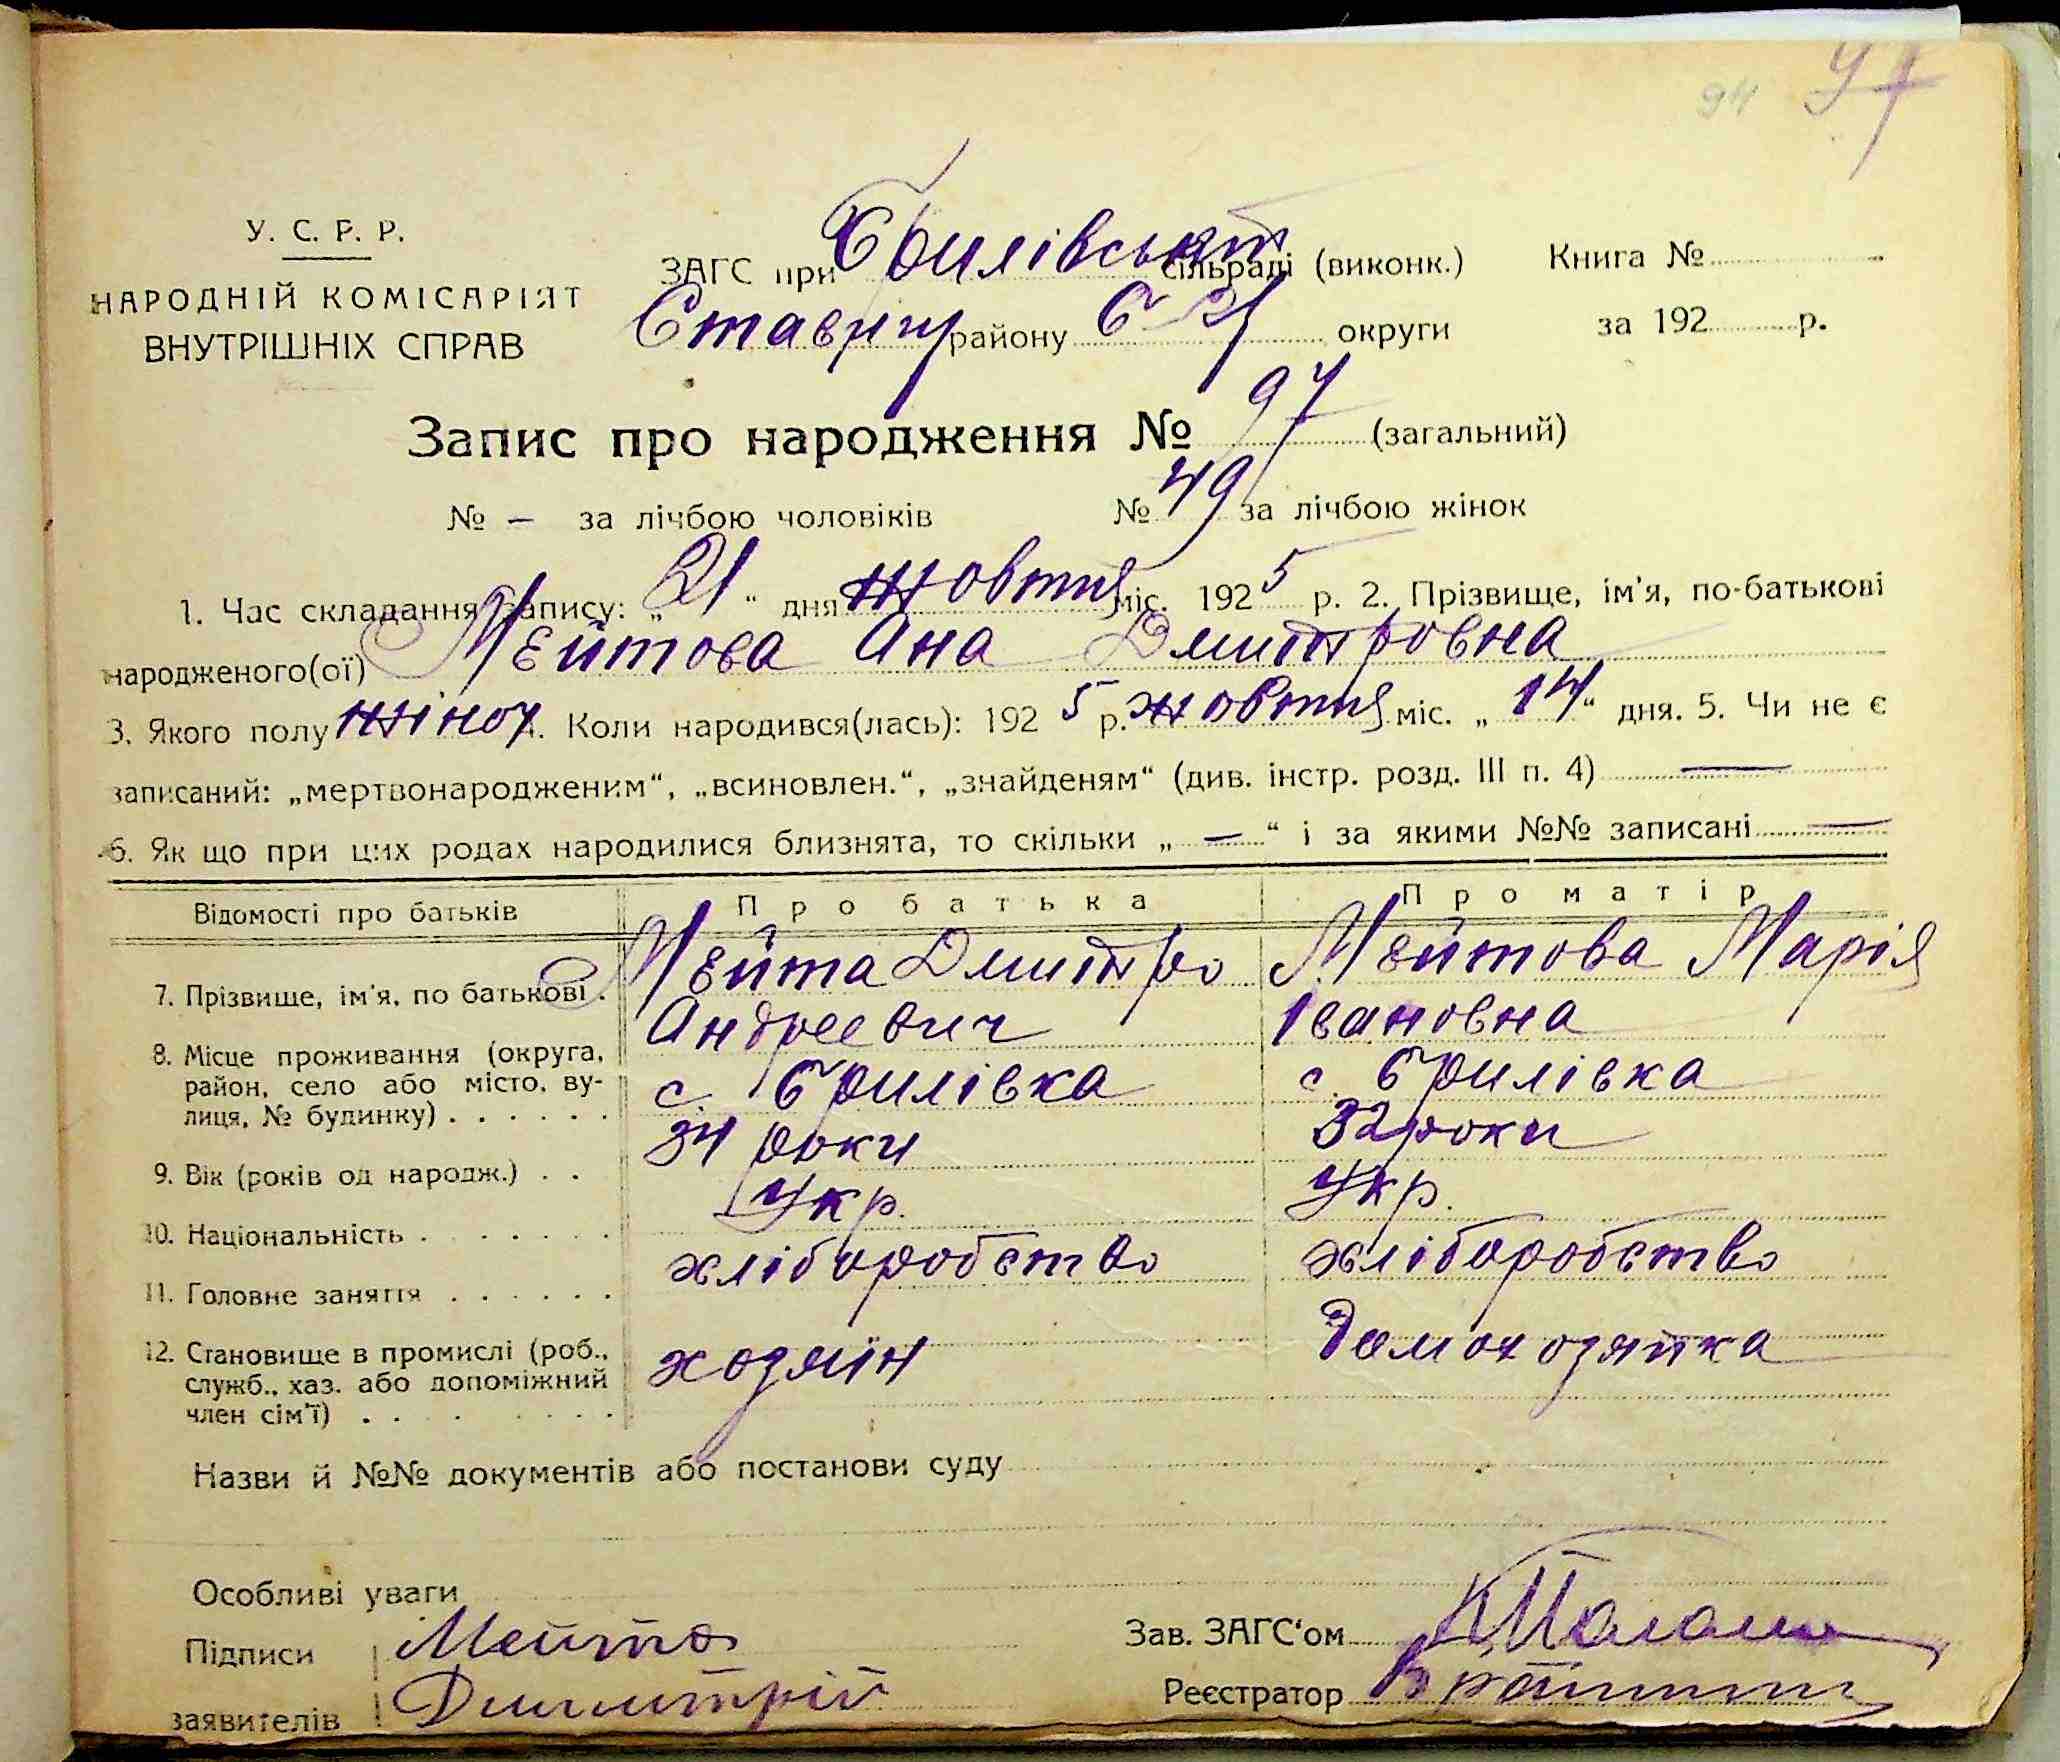 94 97
У. С. Р. Р.
НАРОДНІЙ КОМІСАРІЯТ
ВНУТРІШНІХ СПРАВ
ЗАГС при Брилівській сільраді (виконк.) Книга №
району округи за 192 р.
Запис про народження № 97 (загальний)
№ — за лічбою чоловіків № 49 за лічбою жінок
1. Час складання запису: „21“ дня жовтня міс. 1925 р. 2. Прізвище, ім'я, по-батькові
народженого(ої) Мейтова Ана Дмитровна
3. Якого полу жіноч. 4. Коли народився(лась): 1925 р. жовтня міс. „14“ дня. 5. Чи не є
записаний: „мертвонародженим“, „всиновлен.“, „знайденям“ (див. інстр. розд. III п. 4) —
6. Як що при цих родах народилися близнята, то скільки „—“ і за якими №№ записані —
Відомості про батьків Про батька Про матір
7. Прізвище, ім'я, по батькові . Мейта Дмитро Мейтова Марія
Андреевич Івановна
8. Місце проживання (округа, район, село або місто, ву-
лиця, № будинку) . . . . . . с. Брилівка с. Брилівка
9. Вік (років од народж.) . . 34 роки 32 роки
10. Національність . . . . . . . Укр. Укр.
11. Головне заняття . . . . . . хліборобство хліборобство
12. Становище в промислі (роб.,
служб., хаз. або допоміжний
член сім'ї) . . . . . . . . хозяїн домохозяйка
Назви й №№ документів або постанови суду
Особливі уваги
Підписи Мейта Зав. ЗАГС'ом
заявителів Димитрій Реєстратор